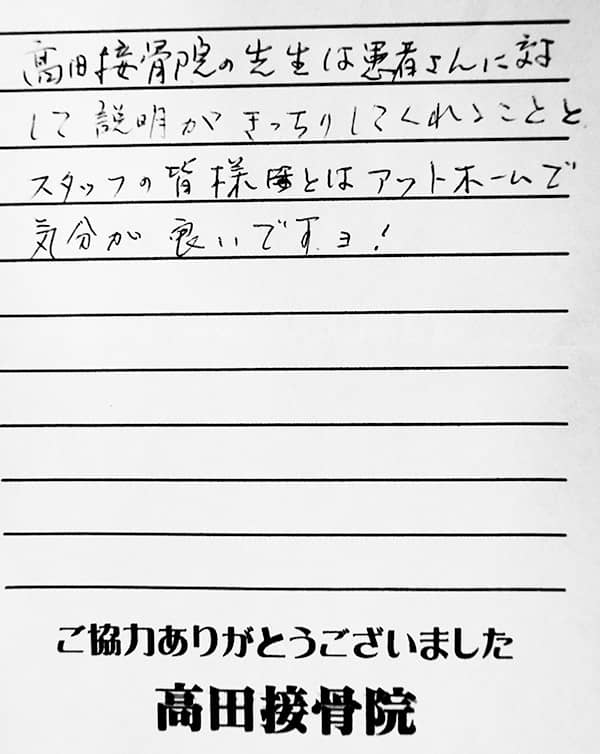 高田接骨院の先生は患者さんに対
して説明がきっちりしてくれることと
スタッフの皆様とはアットホームで
気分が良いですョ!
ご協力ありがとうございました
高田接骨院